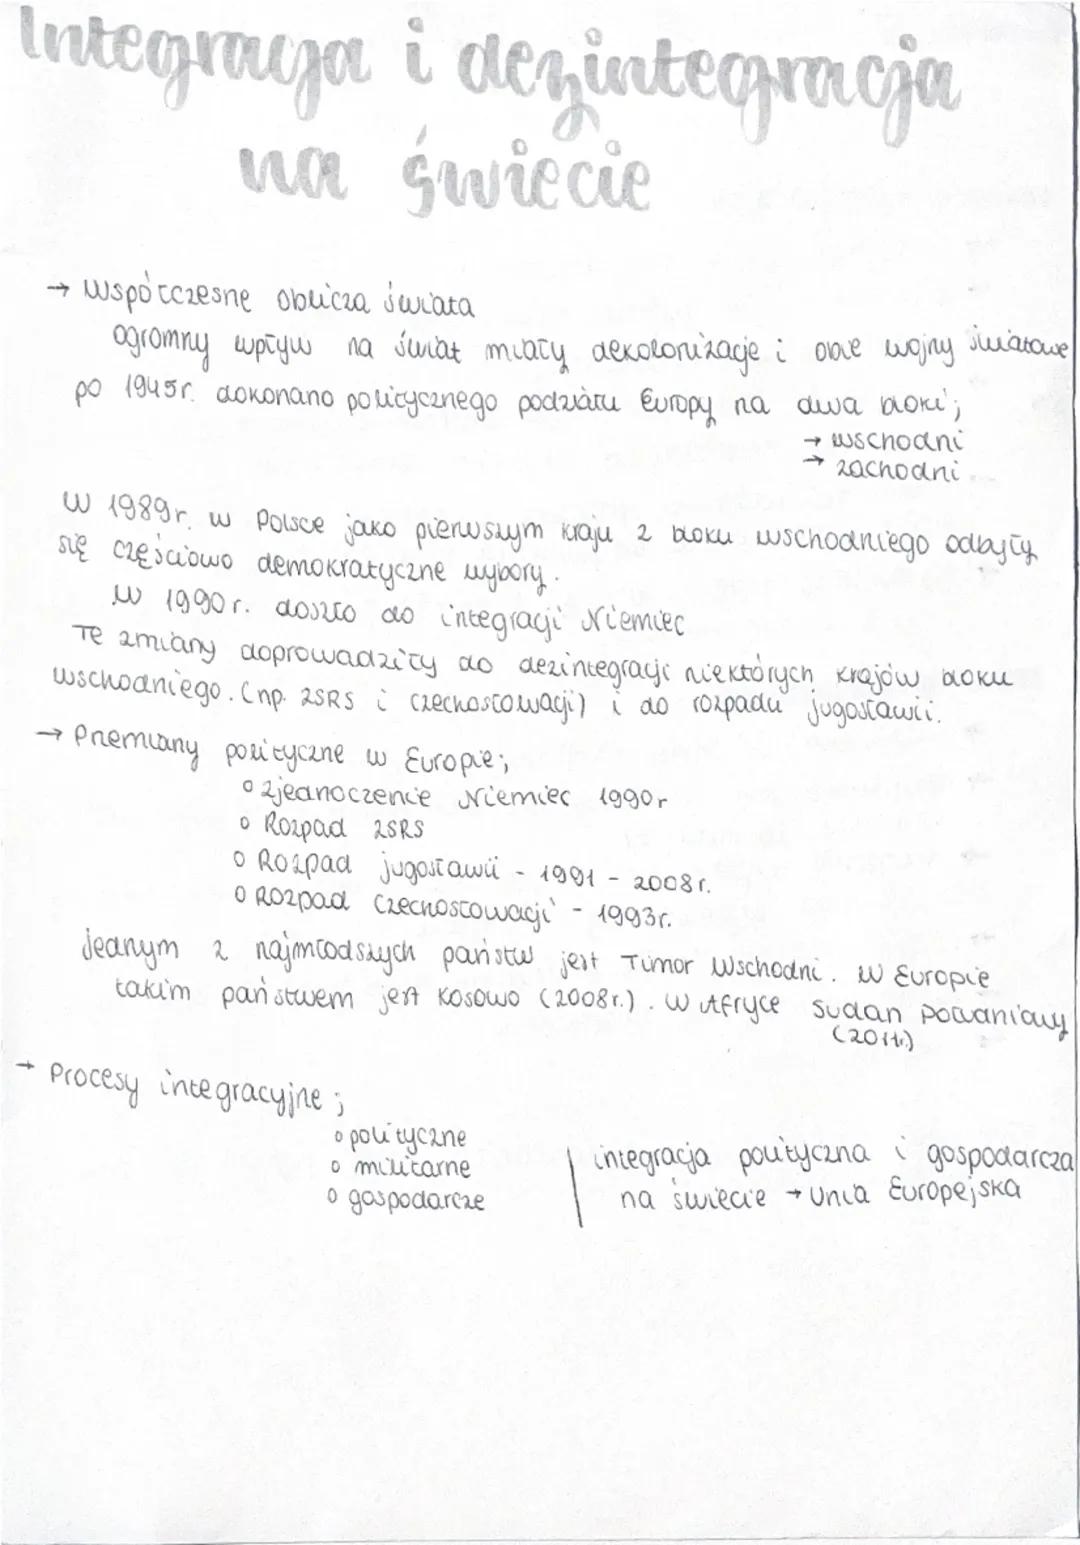 Integracja i dezintegracja
na świecie
→ Współczesne oblicza świata
ogromny wpływ na świat miały dekolonizacje i obie wojny światowe
po 1945r. dokonano politycznego podziału Europy na dwa bloki;
→ wschodni
→ zachodni
W 1989r. w Polsce jako pierwszym kraju z bloku wschodniego odbyły
się częściowo demokratyczne wybory.
W 1990r. doszło do integracji Niemiec
Te zmiany doprowadziły do dezintegracji niektórych krajów bloku
wschodniego. (np. ZSRS i Czechosłowacji) i do rozpadu jugosławii.
→ Przemiany polityczne w Europie;
o zjednoczenie Niemiec 1990r
o Rozpad ZSRS
o Rozpad jugosławii - 1991 - 2008r.
o Rozpad Czechosłowacji - 1993r.
Jednym z najmłodszych państw jest Timor Wschodni. W Europie
takim państwem jest Kosowo (2008r.). W Afryce Sudan Południowy
(2011r.)
→ Procesy integracyjne;
o polityczne
o militarne
o gospodarcze
integracja polityczna i gospodarcza
na świecie → Unia Europejska